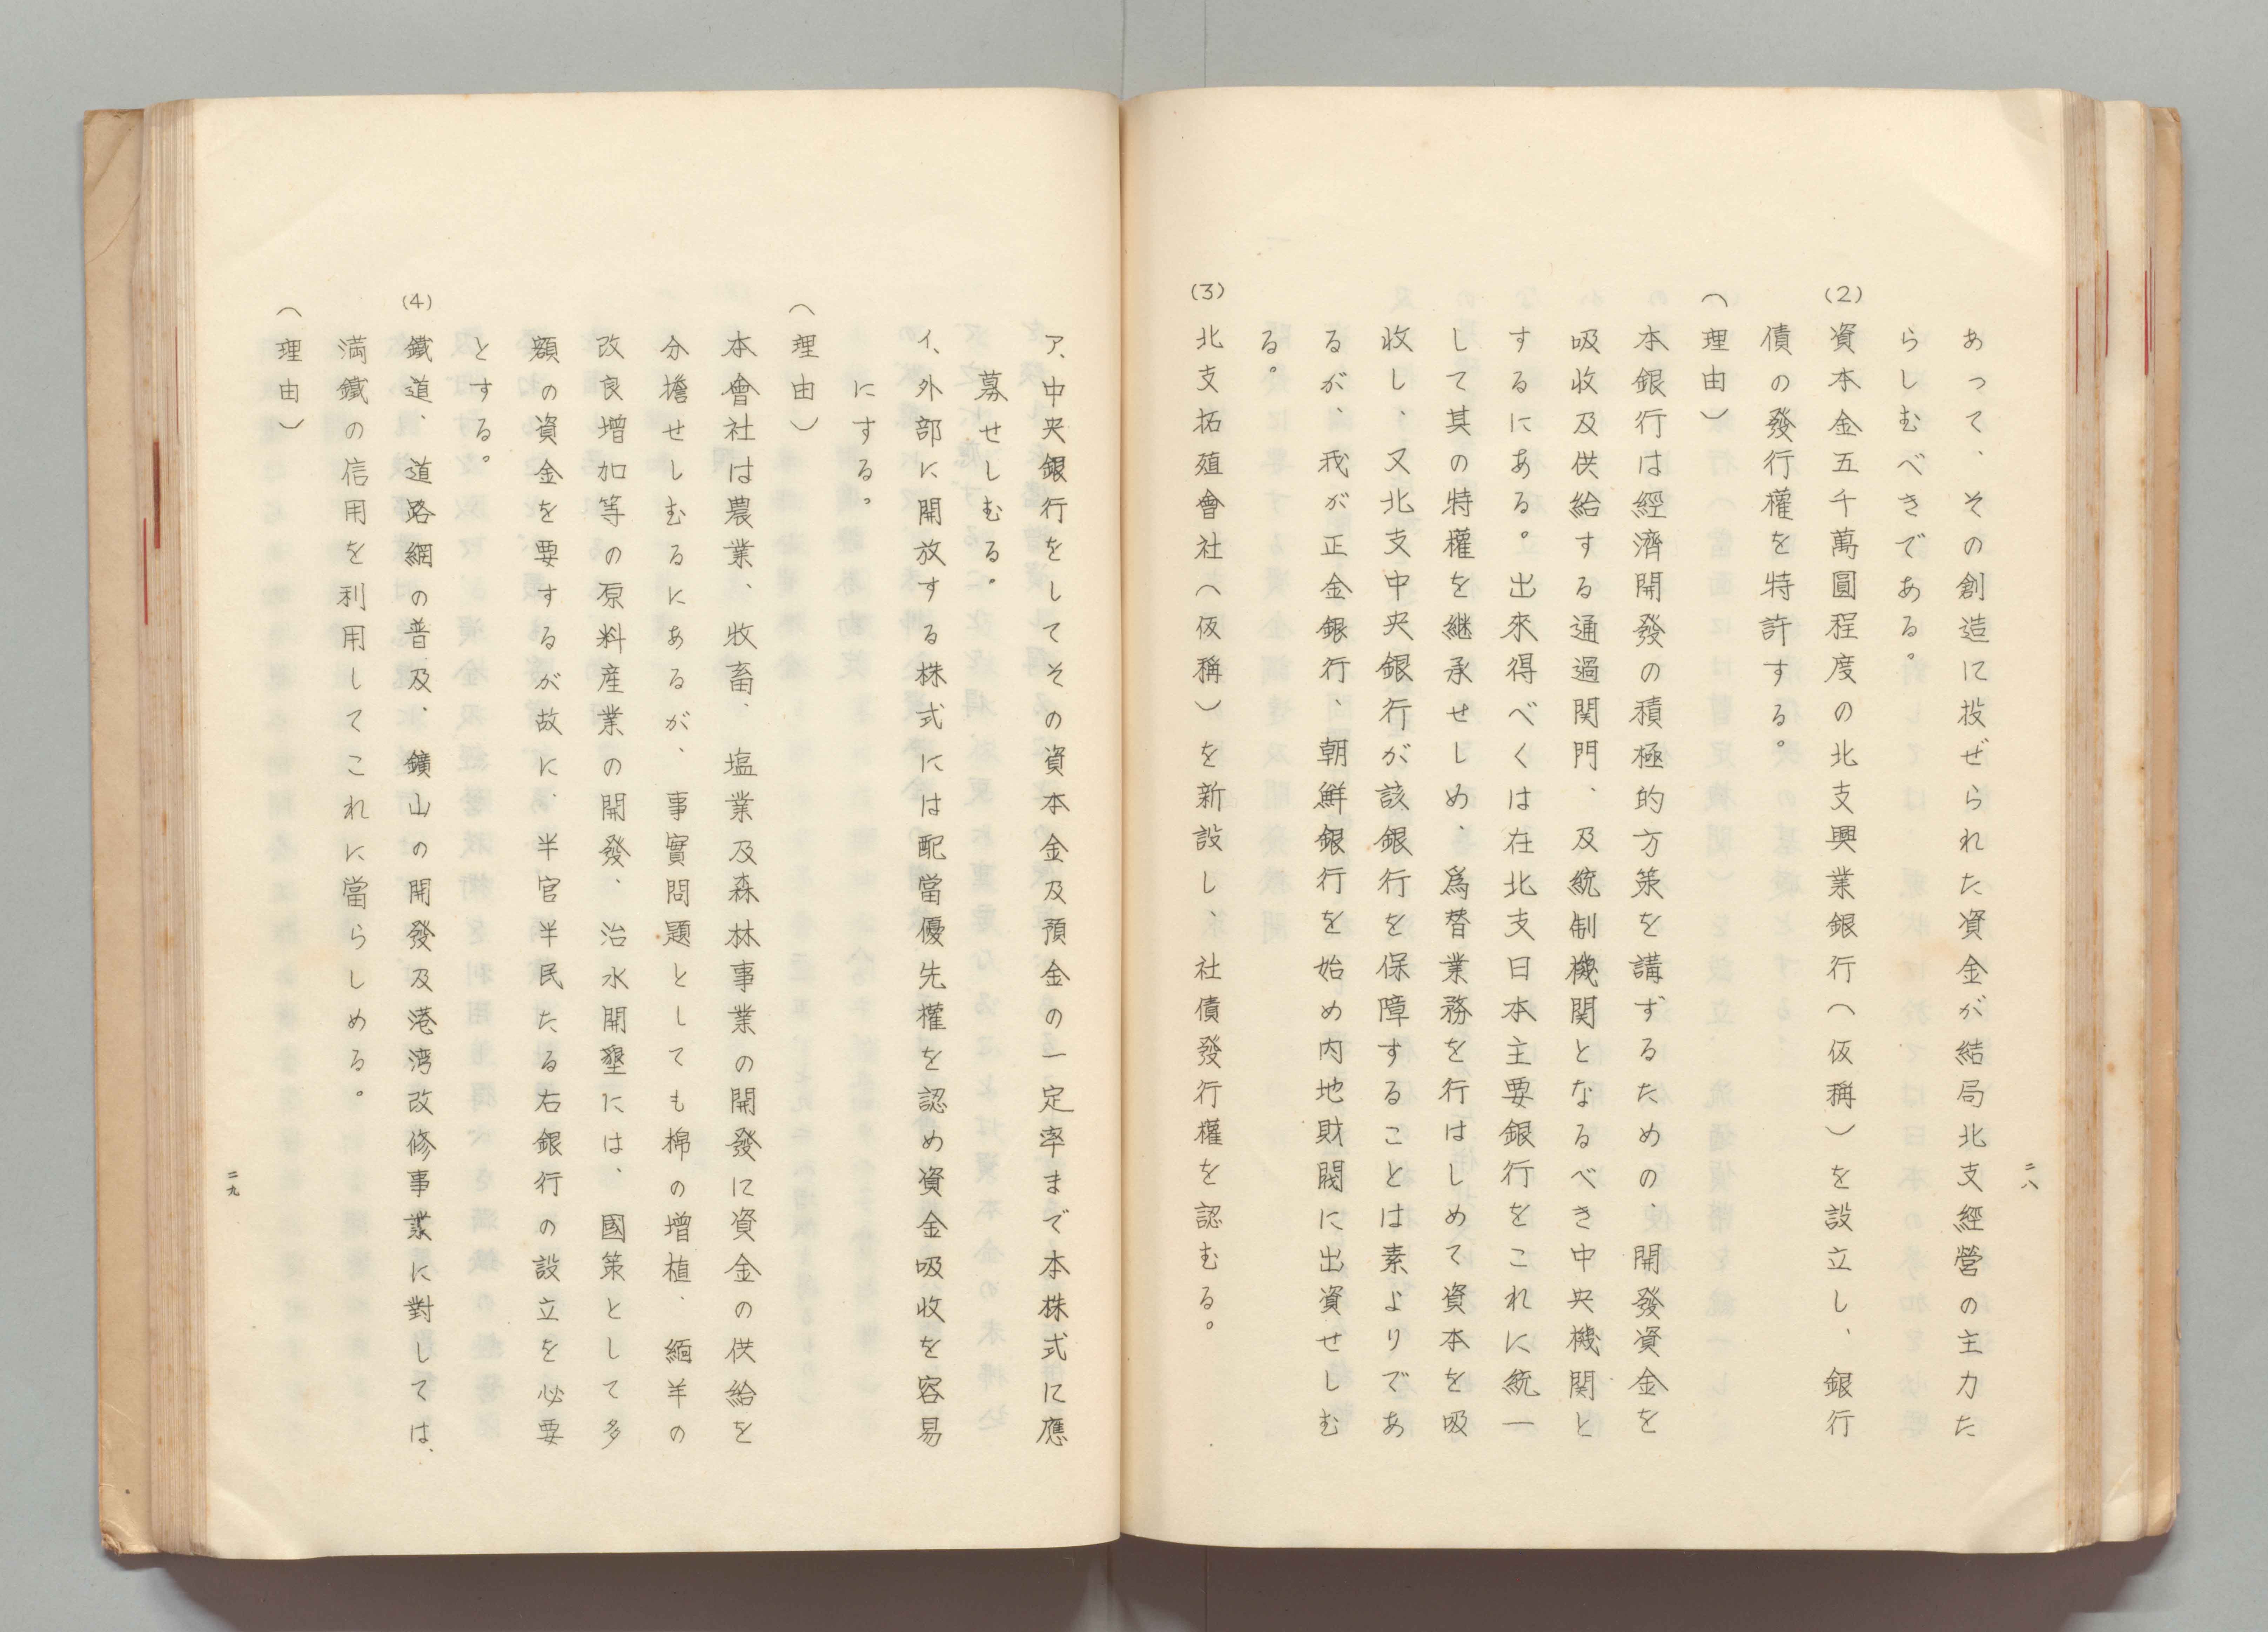 二八
あって、その創造に投ぜられた資金が結局北支經營の主力た
らしむべきである。
(2) 資本金五千萬圓程度の北支興業銀行（仮稱）を設立し、銀行
債の發行權を特許する。
（理由）
本銀行は經濟開發の積極的方策を講ずるための、開發資金を
吸收及供給する通過関門、及統制機関となるべき中央機関と
するにある。出來得べくは在北支日本主要銀行をこれに統一
して其の特權を継承せしめ、爲替業務を行はしめて資本を吸
收し、又北支中央銀行が該銀行を保障することは素よりであ
るが、我が正金銀行、朝鮮銀行を始め内地財閥に出資せしむ
る。
(3) 北支拓殖會社（仮稱）を新設し、社債發行權を認むる。
ア、中央銀行をしてその資本金及預金の一定率まで本株式に應
募せしむる。
イ、外部に開放する株式には配當優先權を認め資金吸收を容易
にする。
（理由）
本會社は農業、牧畜、塩業及森林事業の開發に資金の供給を
分擔せしむるにあるが、事實問題としても棉の增植、緬羊の
改良增加等の原料産業の開發、治水開墾には、國策として多
額の資金を要するが故に、半官半民たる右銀行の設立を必要
とする。
(4) 鐵道、道路網の普及、鑛山の開發及港湾改修事業に對しては、
満鐵の信用を利用してこれに當らしめる。
（理由）
二九